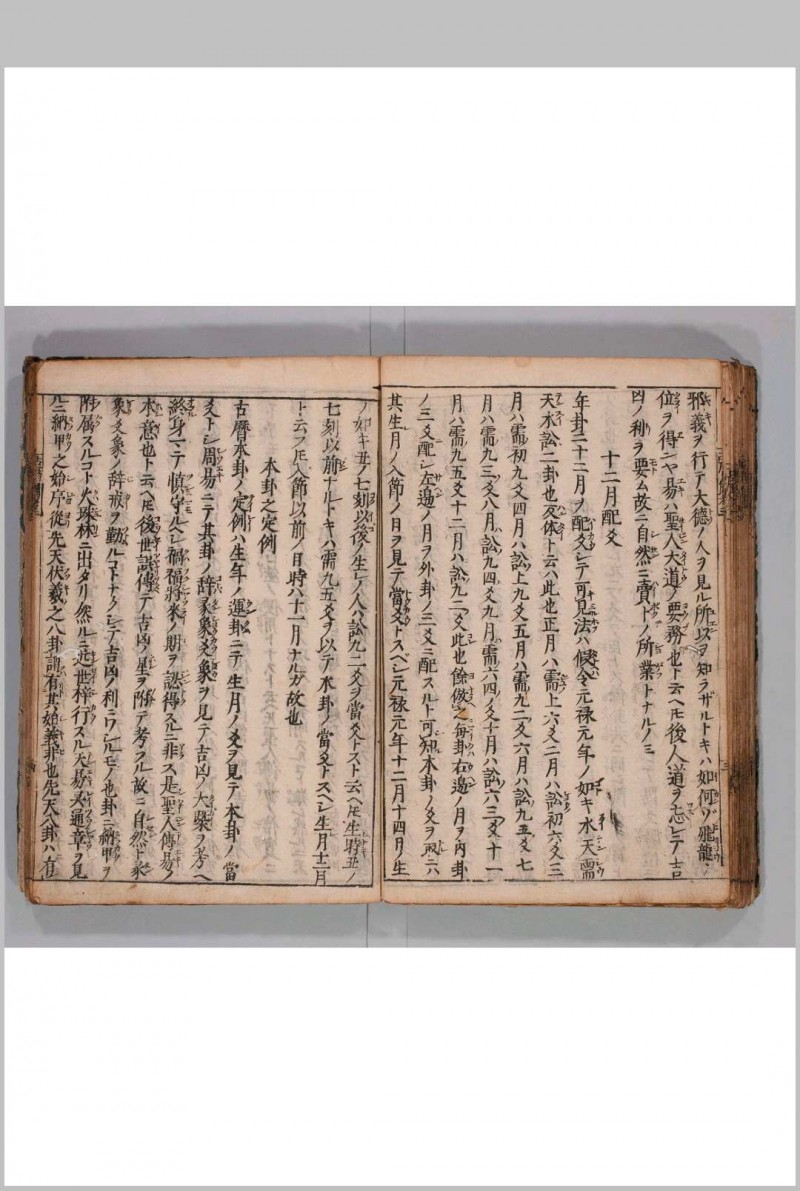 邪義ヲ行テ大德ノ人ヲ見ル所以ヲ知ラザルトキハ如何ゾ飛龍ノ
位ヲ得ンヤ易ハ聖人大道ノ要務也ト云ヘ𪜈後人道ヲ忘レテ吉
凶ノ利ヲ要ム故ニ自然ニ賣卜ノ所業トナルノミ
十二月配爻
年卦ニ十二月ヲ配爻シテ可見法ハ假令元禄元年ノ如キ水天需
天水訟二卦也交体ト云ハ此也正月ハ需上六爻二月ハ訟初六爻三
月ハ需初九爻四月ハ訟上九爻五月ハ需九二爻六月ハ訟九五爻七
月ハ需九三爻八月ハ訟九四爻九月ハ需六四ノ爻十月ハ訟六三爻十一
月ハ需九五爻十二月ハ訟九二爻此也餘倣之毎卦右邊ノ月ヲ内卦
ノ三爻ニ配シ左邊ノ月ヲ外卦ノ三爻ニ配スルト可知本卦ノ爻ヲ取ニハ
其生月ノ入節ノ日ヲ見テ當爻トスベシ元禄元年十二月十四月ノ生
ノ如キ丑ノ七刻以後ノ生レノ人ハ訟九二爻ヲ當爻トスト云ヘ𪜈生時丑ノ
七刻以前ナルトキハ需九五爻ヲ以テ本卦ノ當爻トスベシ生月十二月
ト云フ𪜈入節以前ノ日時ハ十一月ナルガ故也
本卦之定例
古暦本卦ノ定例ハ生年ノ運卦ニテ生月ノ爻ヲ見テ本卦ノ當
爻トシ周易ニテ其卦ノ辞彖象爻象ヲ見テ吉凶ノ大槩ヲ考ヘ
終身マデ慎守ルベシ禍福將來ノ期ヲ認得スルニ非ス是聖人傳易ノ
本意也ト云ヘ𪜈後世誤傳テ吉凶ノ星ヲ附テ考フル故ニ自然ト彖
象爻象ノ辞戒ヲ勤ルコトナクシテ吉凶ノ利ニウレルモノ也卦ニ納甲ヲ
附属スルコト火珠林ニ出タリ然ルニ近世梓行スル天易天通章ヲ見
ルニ納甲之始序從先天伏羲之八卦訓有其始義非也先天八卦ハ有